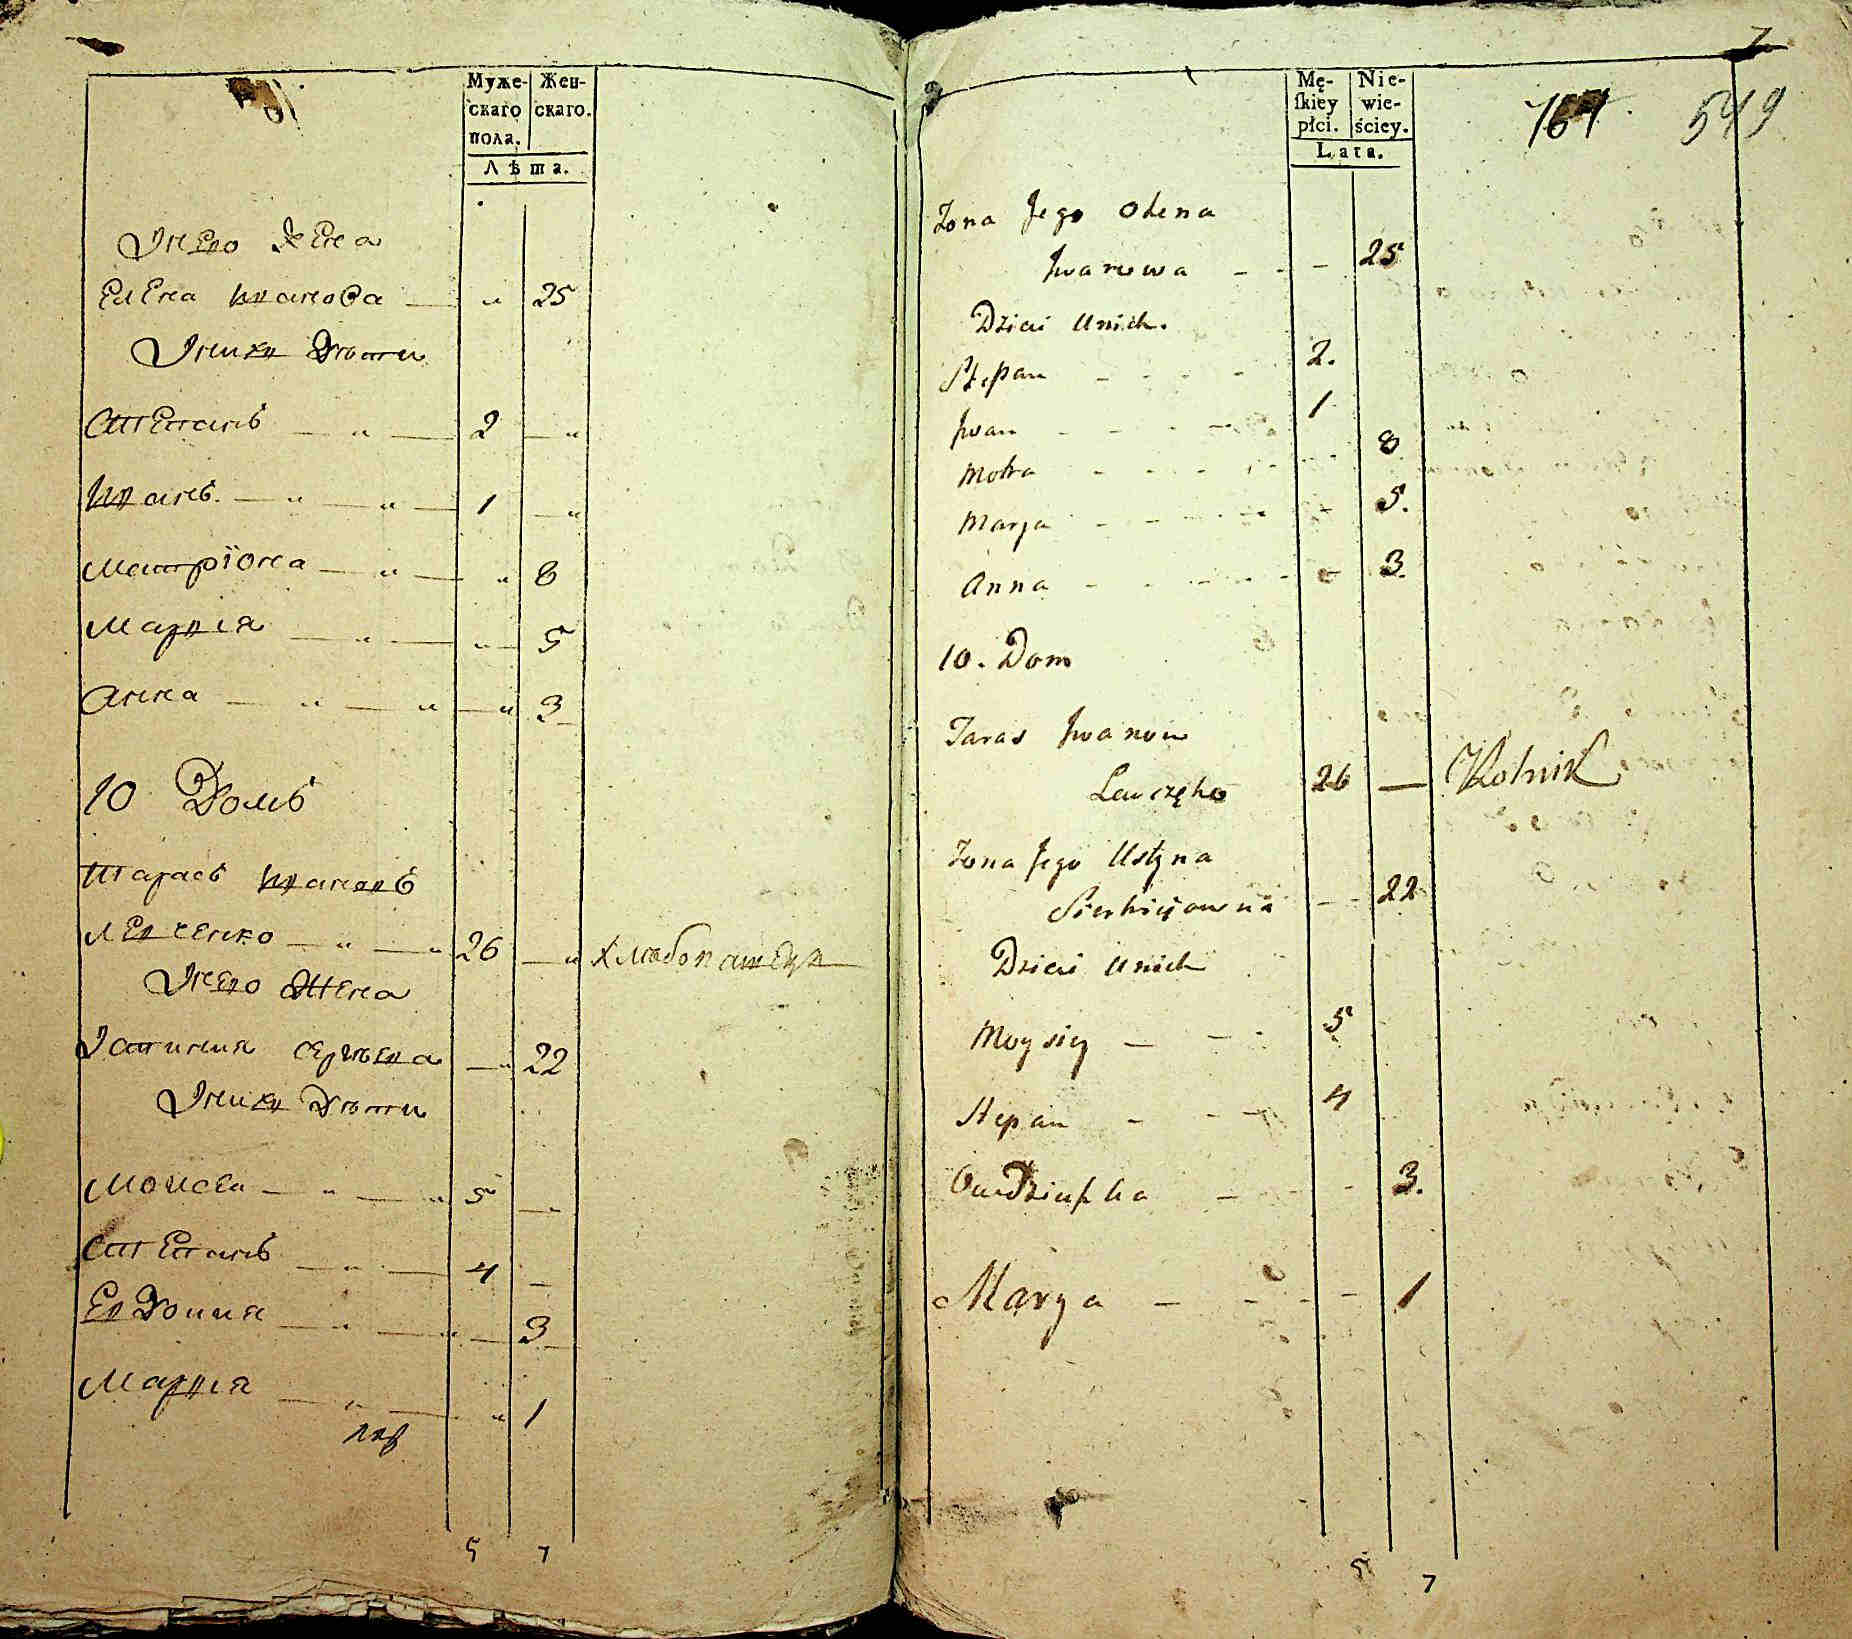 Муже-
скаго
пола.
Жен-
скаго.
Лѣта.
Его Жена
Елена Иванова — " 25
Ихъ Дѣти
Степанъ — " — 2 — "
Иванъ — " — " — 1 — "
Матріона — " — " 8
Марія — " — " — 5
Анна — " — " — " 3
10 Домъ
Тарасъ Ивановъ
Левченко — " — " 26 — " Хлѣбопашецъ
Его Жена
Устинія Сергѣева — " 22
Ихъ Дѣти
Моисей — " — " 5 —
Степанъ — " — 4 —
Евдокия — " — " — 3
Марія — " — " 1
5 7
Mę-
skiey
płci.
Nie-
wie-
ściey.
Lata.
7
164
549
Żona Jego Olena
Iwanowa - - - 25
Dzieci Unich.
Stepan - - - - 2.
Iwan - - - - 1
Motra - - - - 8
Marya - - - - 5.
Anna - - - - 3.
10. Dom
Taras Iwanow
Lewczęko 26 — Rolnik
Żona Jego Ustyna
Sierhiijowna - - 22
Dzieci Unich
Moysiy - - - 5
Stepan - - - 4
Owdziuszka - - - 3.
Marya - - - - 1
5 7